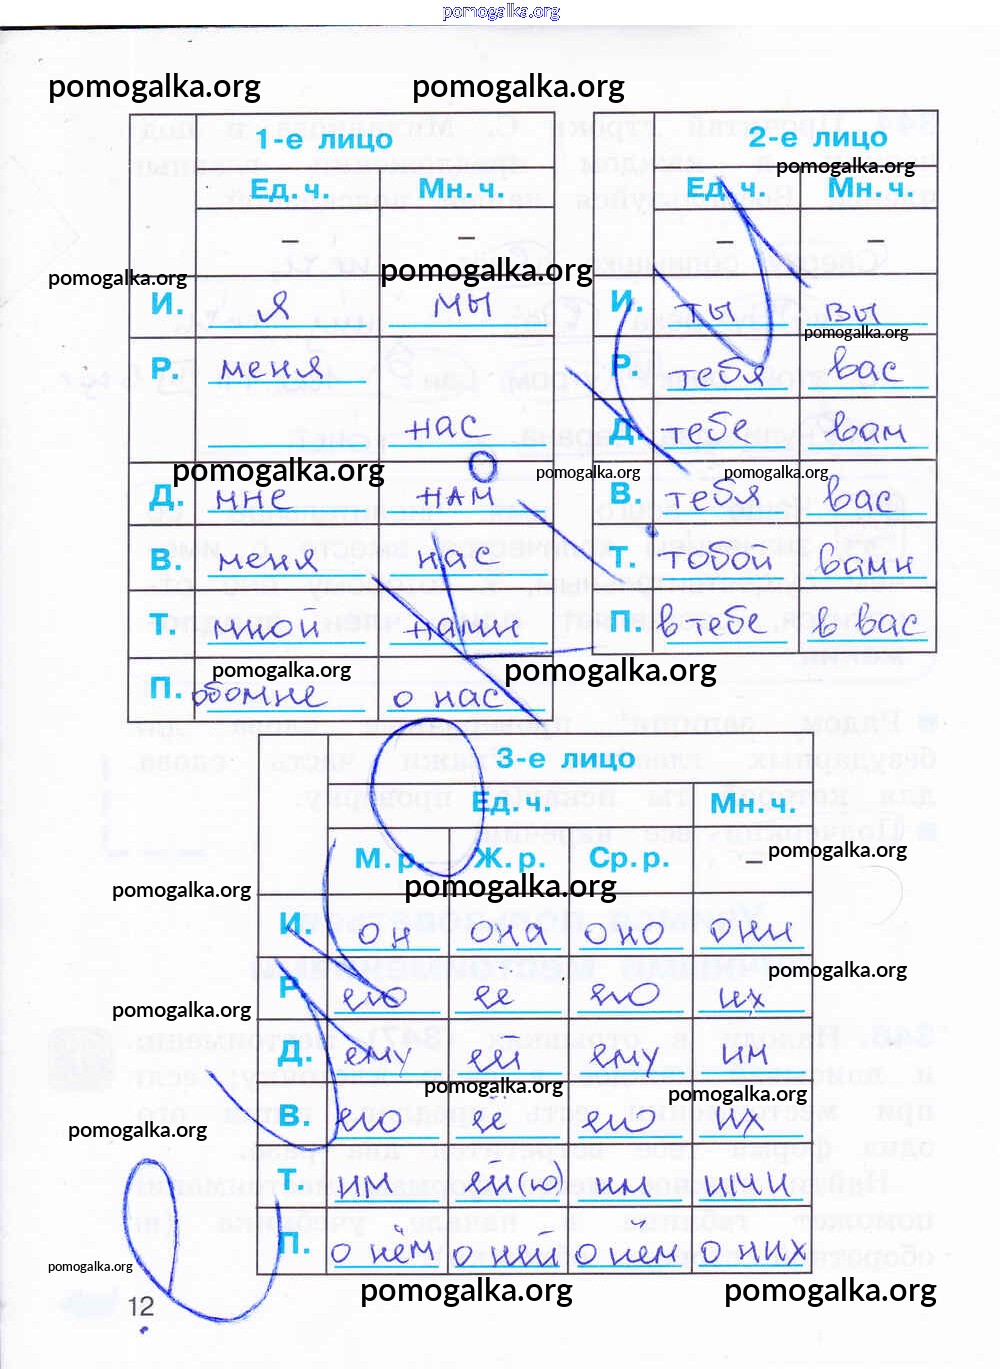 pomogalka.org
pomogalka.org pomogalka.org
1-е лицо
Ед. ч. Мн. ч.
– –
pomogalka.org pomogalka.org
И. я мы
Р. меня
нас
pomogalka.org
Д. мне нам
В. меня нас
Т. мной нами
pomogalka.org
П. обо мне о нас
2-е лицо
pomogalka.org
Ед. ч. Мн. ч.
– –
И. ты вы
pomogalka.org
Р. тебя вас
Д. тебе вам
pomogalka.org pomogalka.org
В. тебя вас
Т. тобой вами
П. в тебе в вас
pomogalka.org
3-е лицо
Ед. ч. Мн. ч.
М. р. Ж. р. Ср. р. –
pomogalka.org
pomogalka.org pomogalka.org
И. он она оно они
pomogalka.org
Р. его ее его их
pomogalka.org
Д. ему ей ему им
pomogalka.org pomogalka.org
В. его её его их
pomogalka.org
Т. им ей(ю) им ими
П. о нём о ней о нём о них
pomogalka.org
pomogalka.org pomogalka.org
12